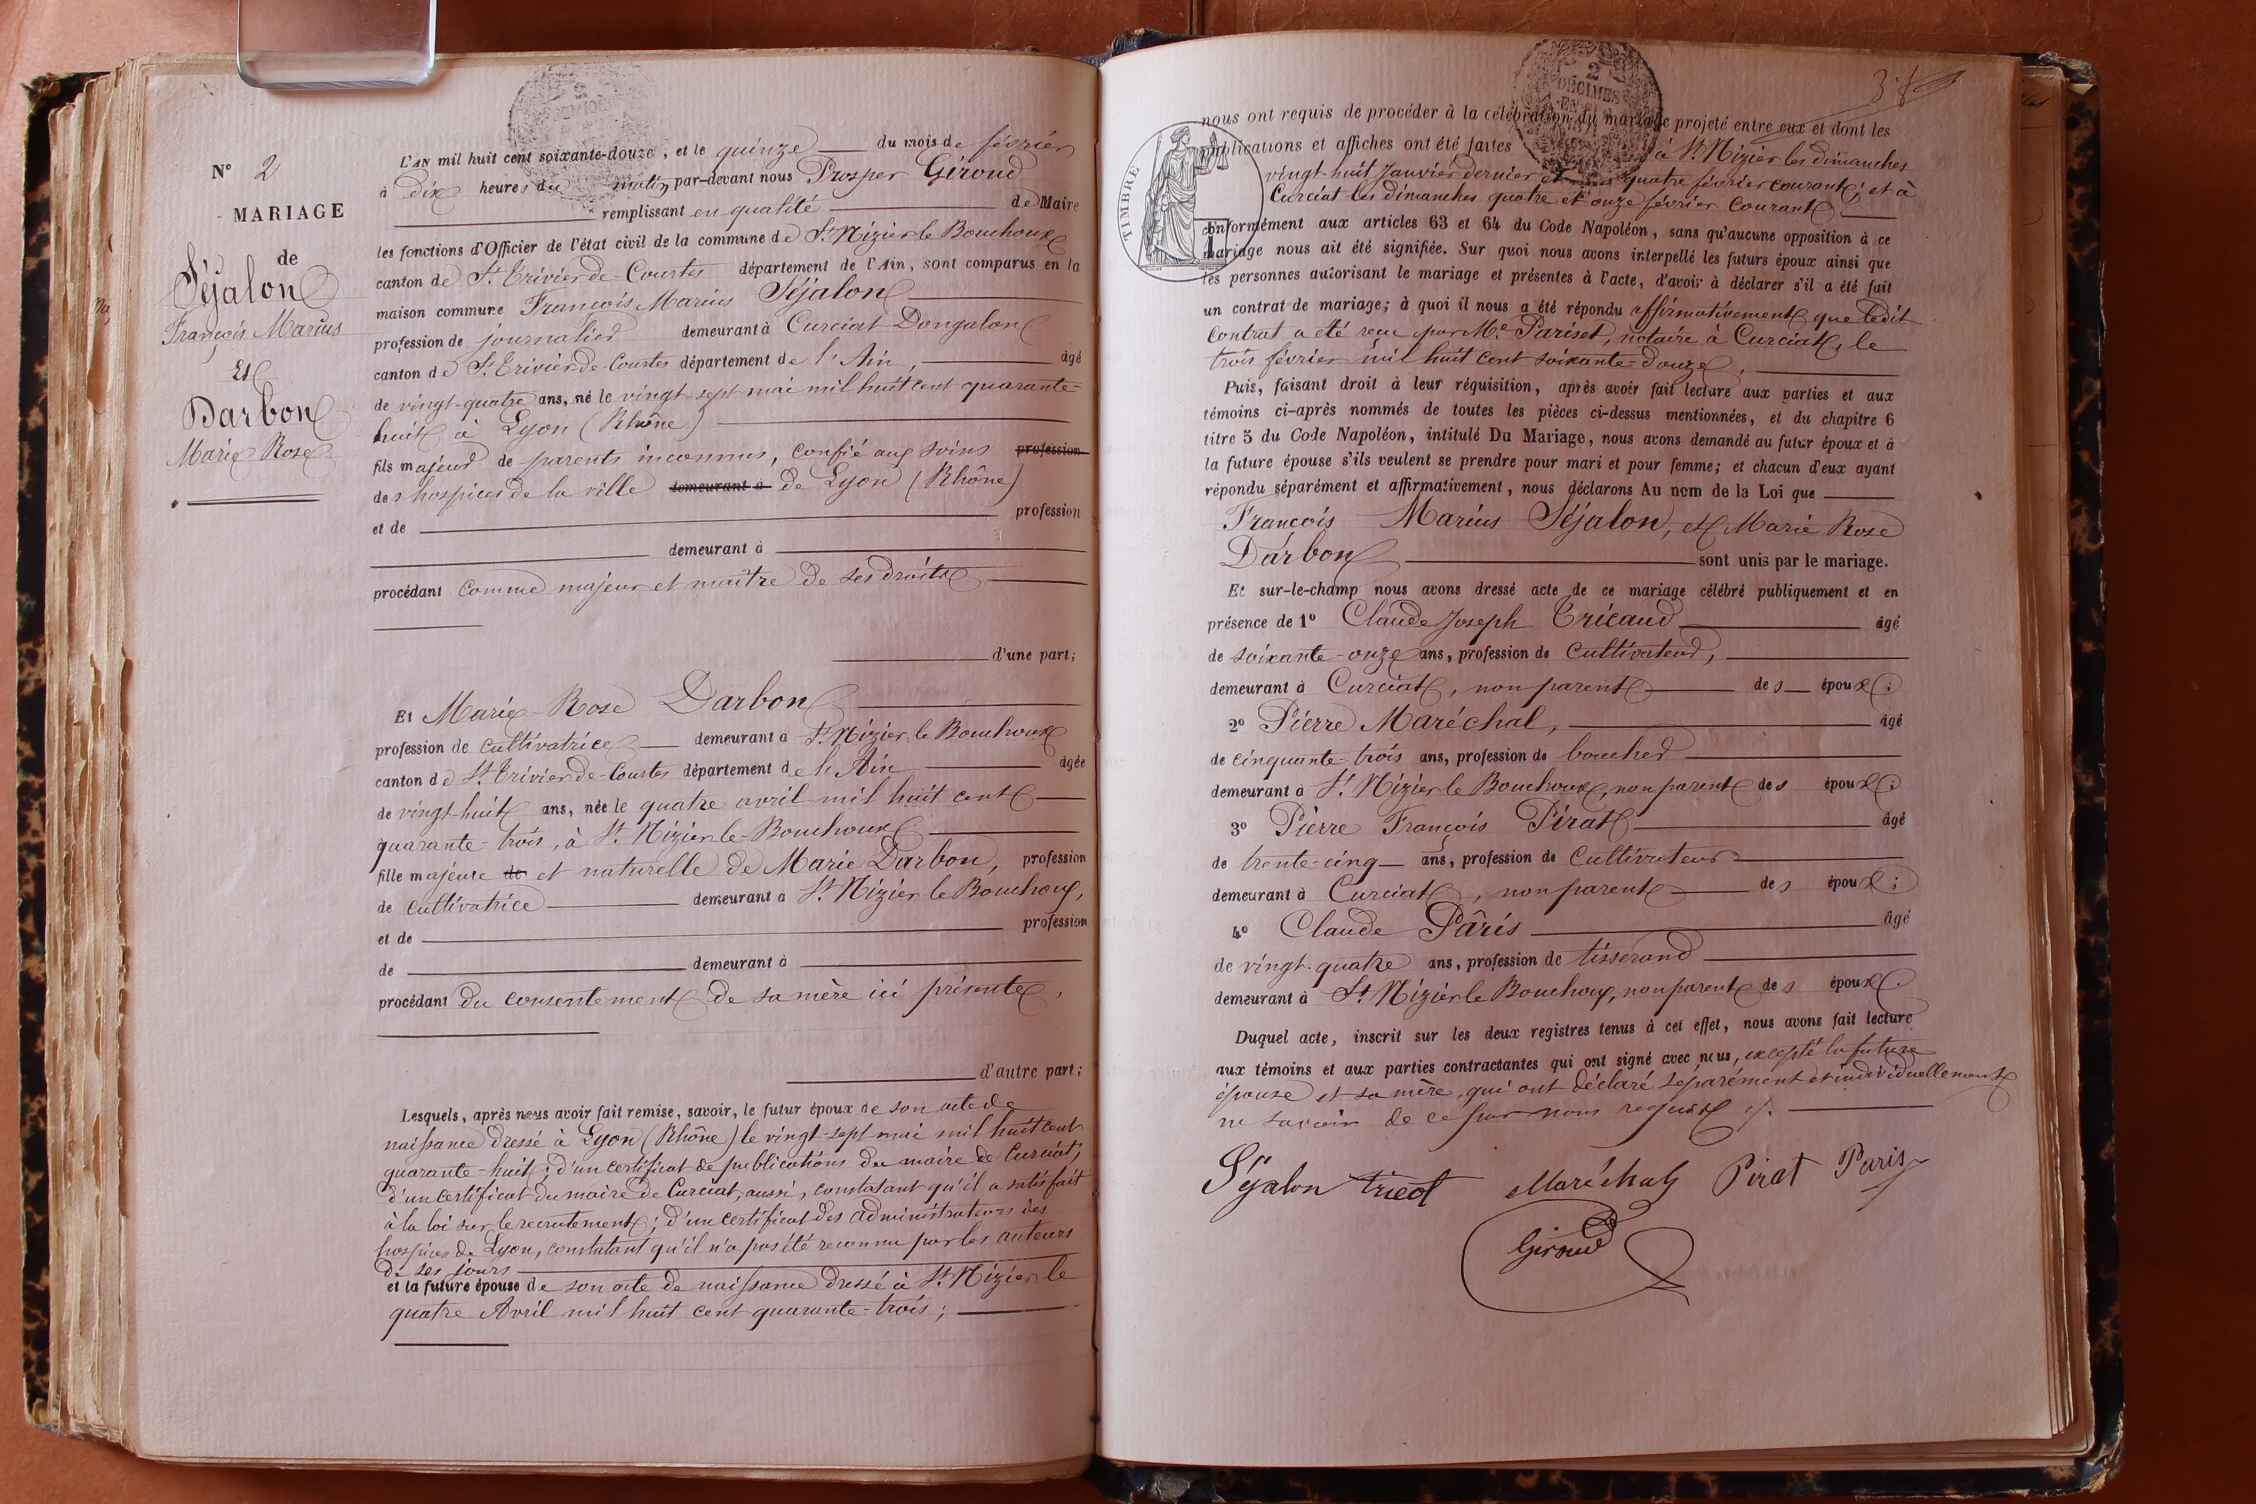 N° 2
MARIAGE
de
Séjalon
François Marius
Et
Darbon
Marie Rose
L'AN mil huit cent soixante-douze, et le quinze du mois de février
à dix heures du matin, par-devant nous Prosper Giroud
remplissant en qualité de Maire
les fonctions d'Officier de l'état civil de la commune de St Nizier le Bouchoux
canton de St Trivier-de-Courtes département de l'Ain, sont comparus en la
maison commune François Marius Séjalon
profession de journalier demeurant à Curciat Dongalon
canton de St Trivier-de-Courtes département de l'Ain, âgé
de vingt-quatre ans, né le vingt-sept mai mil huit cent quarante-
huit à Lyon (Rhône)
fils majeur de parents inconnus, confié aux soins profession
des hospices de la ville demeurant à de Lyon (Rhône)
et de profession
demeurant à
procédant comme majeur et maître de ses droits
d'une part;
Et Marie-Rose Darbon
profession de cultivatrice demeurant à St Nizier le Bouchoux
canton de St Trivier-de-Courtes département de l'Ain âgée
de vingt-huit ans, née le quatre avril mil huit cent
quarante-trois, à St Nizier-le-Bouchoux
fille majeure de et naturelle de Marie Darbon, profession
de cultivatrice demeurant à St Nizier le Bouchoux,
et de profession
de demeurant à
procédant du consentement de sa mère ici présente,
d'autre part;
Lesquels, après nous avoir fait remise, savoir, le futur époux de son acte de
naissance dressé à Lyon (Rhône) le vingt-sept mai mil huit cent
quarante-huit; d'un certificat de publications du maire de Curciat;
d'un certificat du maire de Curciat, aussi, constatant qu'il a satisfait
à la loi sur le recrutement; d'un certificat des administrateurs des
hospices de Lyon, constatant qu'il n'a pas été reconnu par les auteurs
de ses jours
et la future épouse de son acte de naissance dressé à St Nizier le
quatre Avril mil huit cent quarante-trois;
2
DÉCIMES
EN
TIMBRE
nous ont requis de procéder à la célébration du mariage projeté entre eux et dont les
publications et affiches ont été faites à St Nizier les dimanches
vingt-huit Janvier dernier et quatre février courant; et à
Curciat les dimanches quatre et onze février courant
conformément aux articles 63 et 64 du Code Napoléon, sans qu'aucune opposition à ce
mariage nous ait été signifiée. Sur quoi nous avons interpellé les futurs époux ainsi que
les personnes autorisant le mariage et présentes à l'acte, d'avoir à déclarer s'il a été fait
un contrat de mariage; à quoi il nous a été répondu affirmativement que ledit
Contrat a été reçu par Me Pariset, notaire à Curciat, le
trois février mil huit cent soixante-douze.
Puis, faisant droit à leur réquisition, après avoir fait lecture aux parties et aux
témoins ci-après nommés de toutes les pièces ci-dessus mentionnées, et du chapitre 6
titre 5 du Code Napoléon, intitulé Du Mariage, nous avons demandé au futur époux et à
la future épouse s'ils veulent se prendre pour mari et pour femme; et chacun d'eux ayant
répondu séparément et affirmativement, nous déclarons Au nom de la Loi que
François Marius Séjalon, et Marie Rose
Darbon sont unis par le mariage.
Et sur-le-champ nous avons dressé acte de ce mariage célébré publiquement et en
présence de 1° Claude Joseph Tricaud âgé
de soixante-onze ans, profession de cultivateur,
demeurant à Curciat, non parent des époux;
2° Pierre Maréchal, âgé
de cinquante-trois ans, profession de boucher
demeurant à St Nizier le Bouchoux, non parent des époux;
3° Pierre François Pirat âgé
de trente-cinq ans, profession de Cultivateur
demeurant à Curciat, non parent des époux;
4° Claude Pâris âgé
de vingt-quatre ans, profession de tisserand
demeurant à St Nizier le Bouchoux, non parent des époux.
Duquel acte, inscrit sur les deux registres tenus à cet effet, nous avons fait lecture
aux témoins et aux parties contractantes qui ont signé avec nous, excepté la future
épouse et sa mère, qui ont déclaré séparément et individuellement
ne savoir de ce par nous requis
Séjalon Maréchal Pirat Paris
Giroud